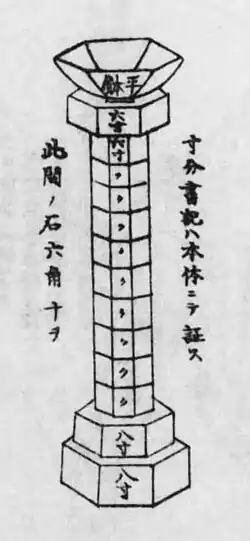 寸分書記ハ本体ニテ証ス
平鉢
六寸
六寸
〃
〃
〃
〃
〃
〃
〃
〃
〃
八寸
八寸
此間ノ石六角十ヲ